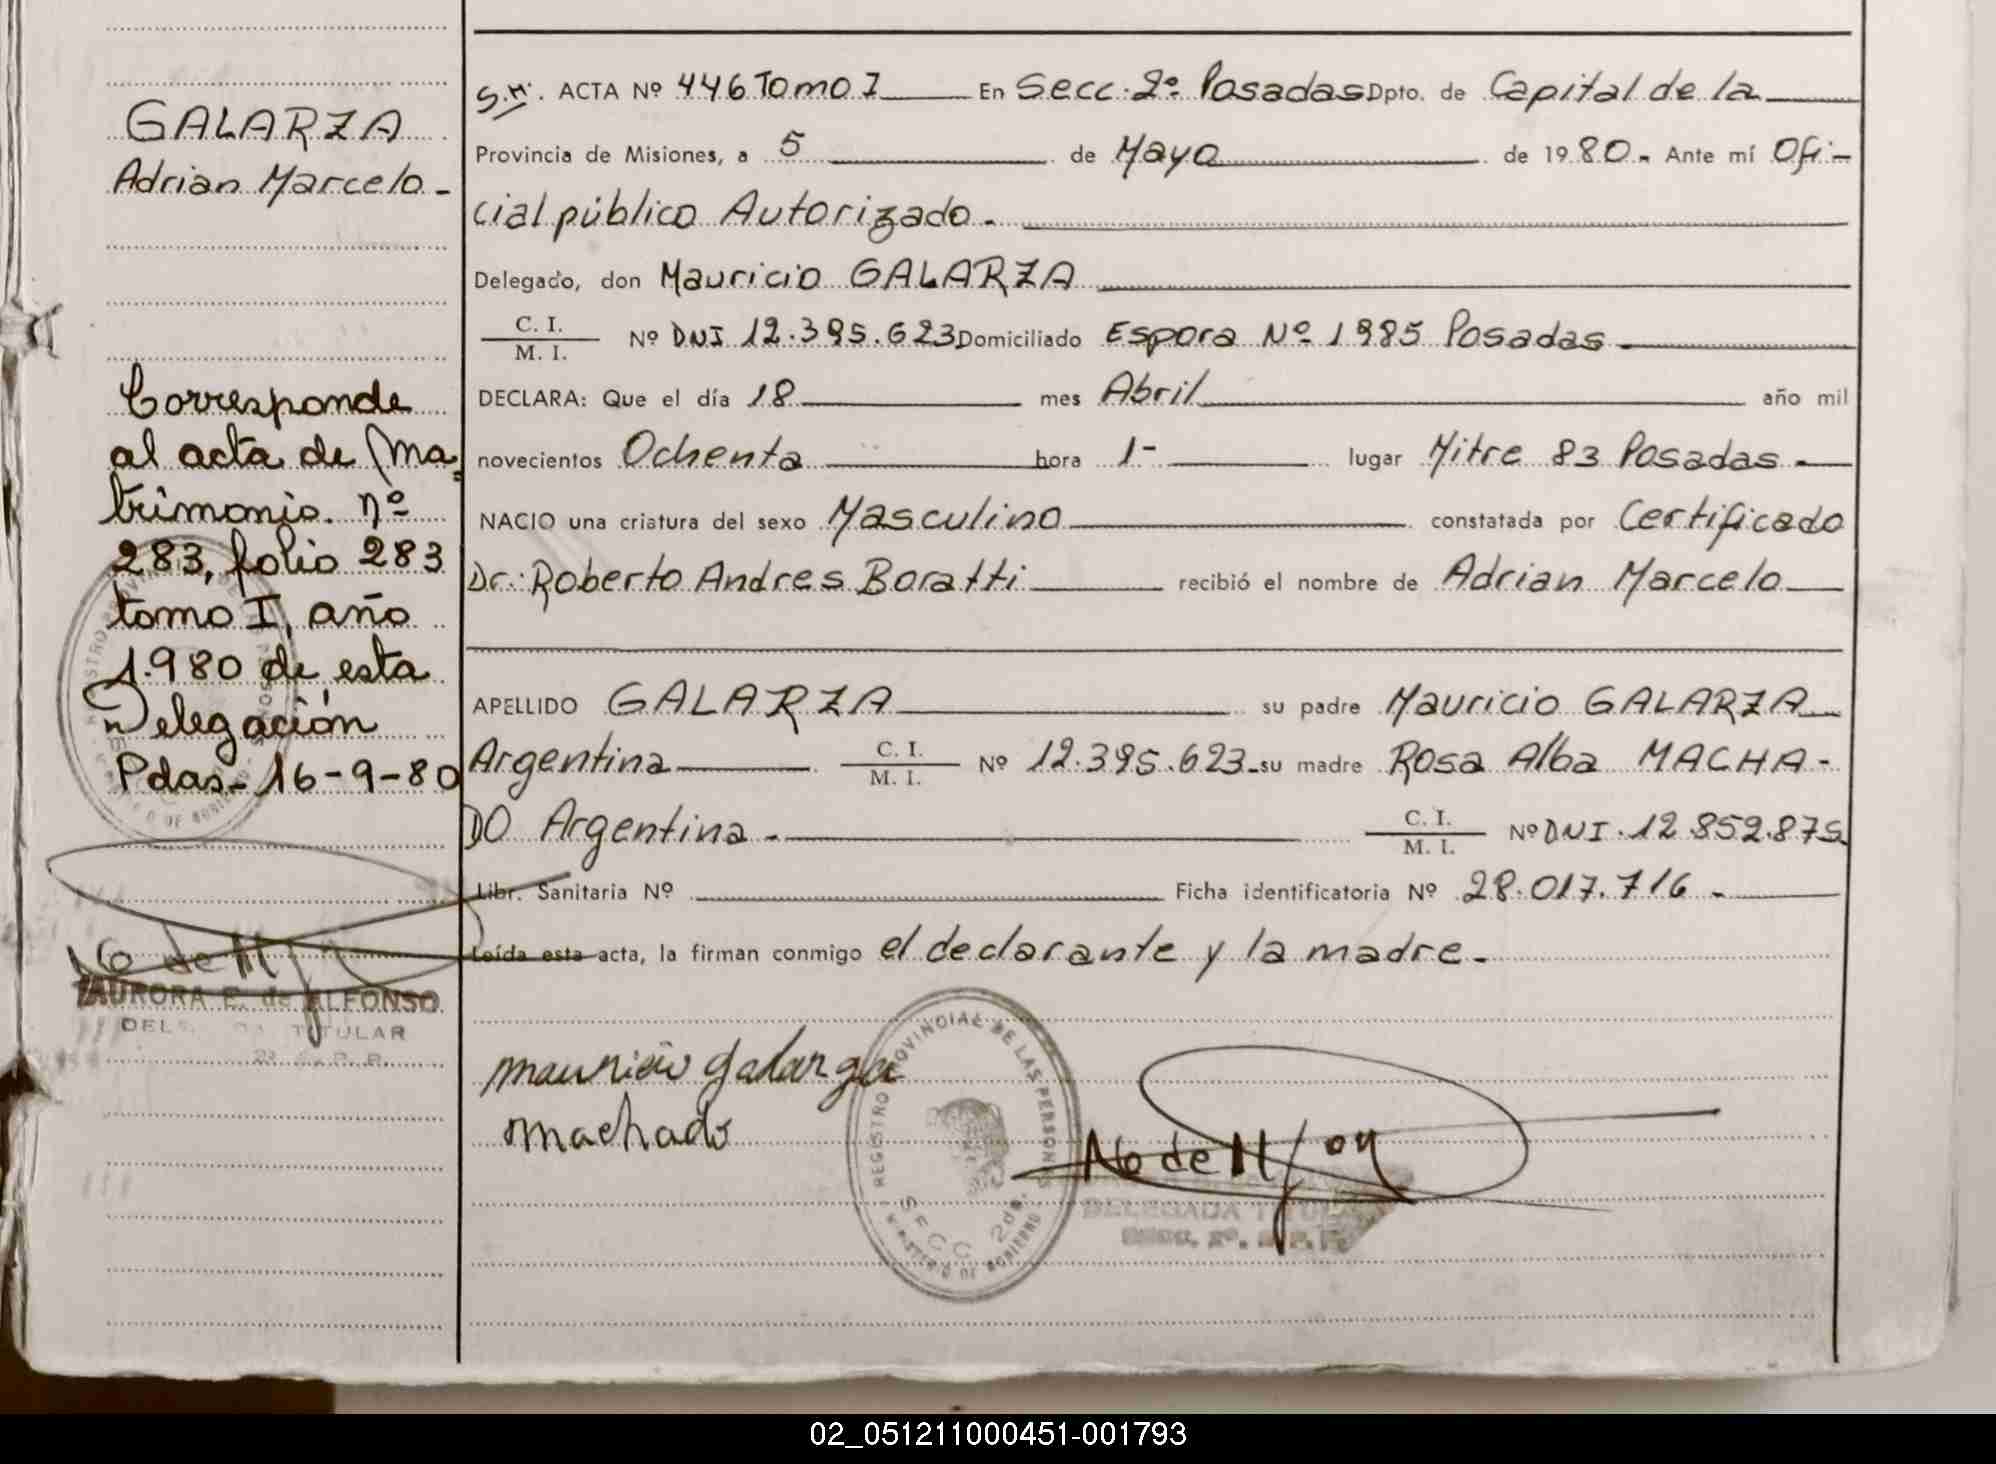 GALARZA
Adrian Marcelo -
Corresponde
al acta de Ma-
trimonio. nº
283, folio 283
tomo I, año
1.980 de esta
Delegación
Pdas- 16-9-80
AURORA E. de ALFONSO
TITULAR
S.M. ACTA Nº 446 Tomo I En Secc. 2º Posadas Dpto. de Capital de la
Provincia de Misiones, a 5 de Mayo de 1980. - Ante mí Ofi-
cial público Autorizado. -
Delegado, don Mauricio GALARZA
C. I.
M. I. Nº DNI 12.395.623 Domiciliado Espora Nº 1985 Posadas -
DECLARA: Que el día 18 mes Abril año mil
novecientos Ochenta hora 1- lugar Mitre 83 Posadas. -
NACIO una criatura del sexo Masculino constatada por Certificado
Dr. Roberto Andres Boratti recibió el nombre de Adrian Marcelo
APELLIDO GALARZA su padre Mauricio GALARZA
Argentina C. I.
M. I. Nº 12.395.623- su madre Rosa Alba MACHA-
DO Argentina - C. I.
M. I. Nº DNI. 12.852.875
Libr. Sanitaria Nº Ficha identificatoria Nº 28.017.716 -
Leída esta acta, la firman conmigo el declarante y la madre. -
mauricio galarza
machado
REGISTRO PROVINCIAL DE LAS PERSONAS
SECC. 2da.
MINISTERIO DE GOBIERNO
DELEGADA TITULAR
02_051211000451-001793